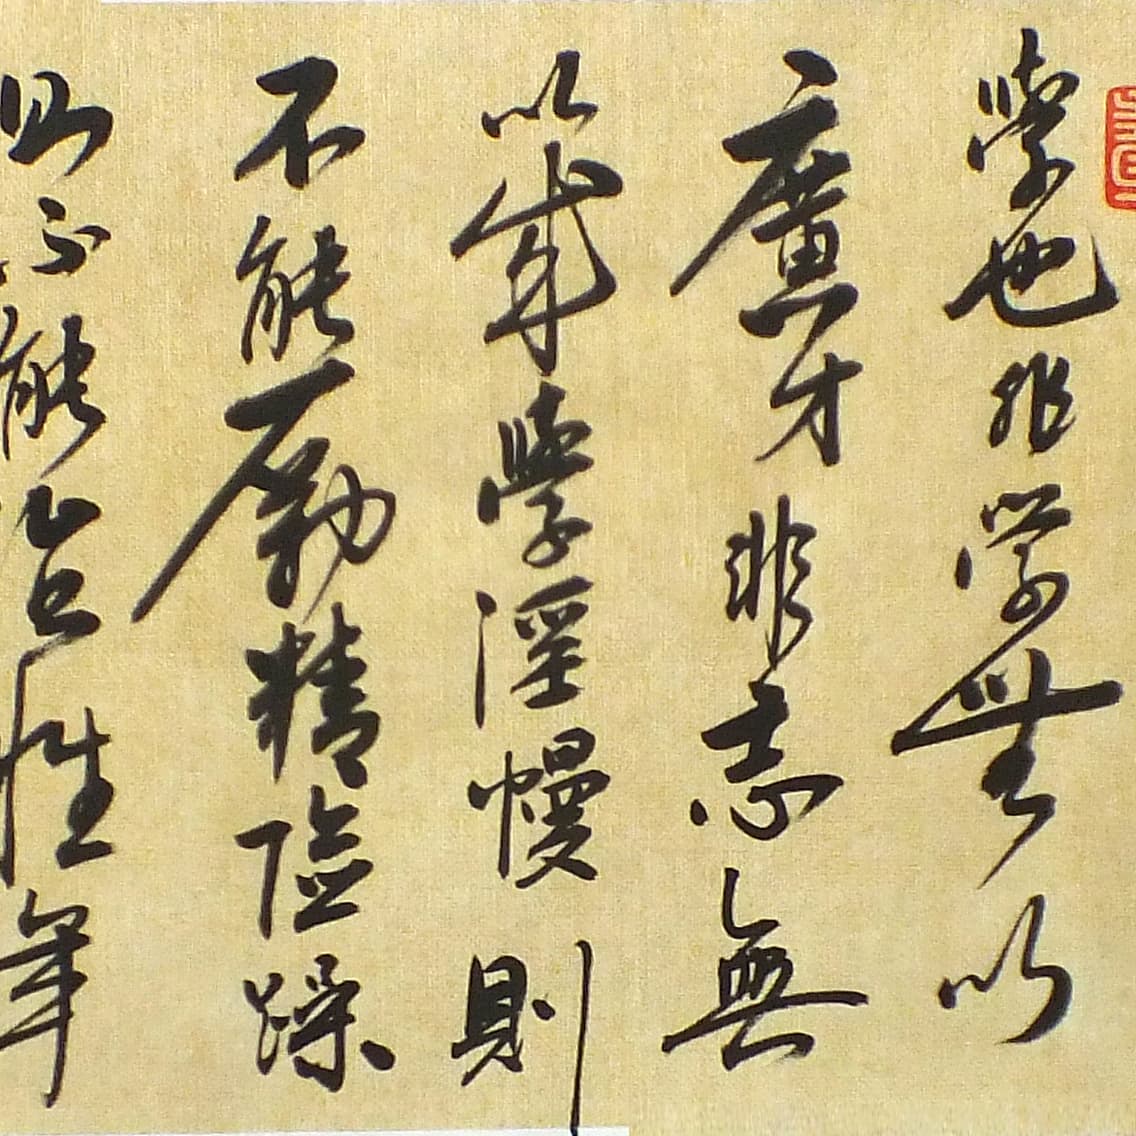 學也非学無以
廣才非志無
以成學淫慢則
不能励精險躁
則不能冶性年